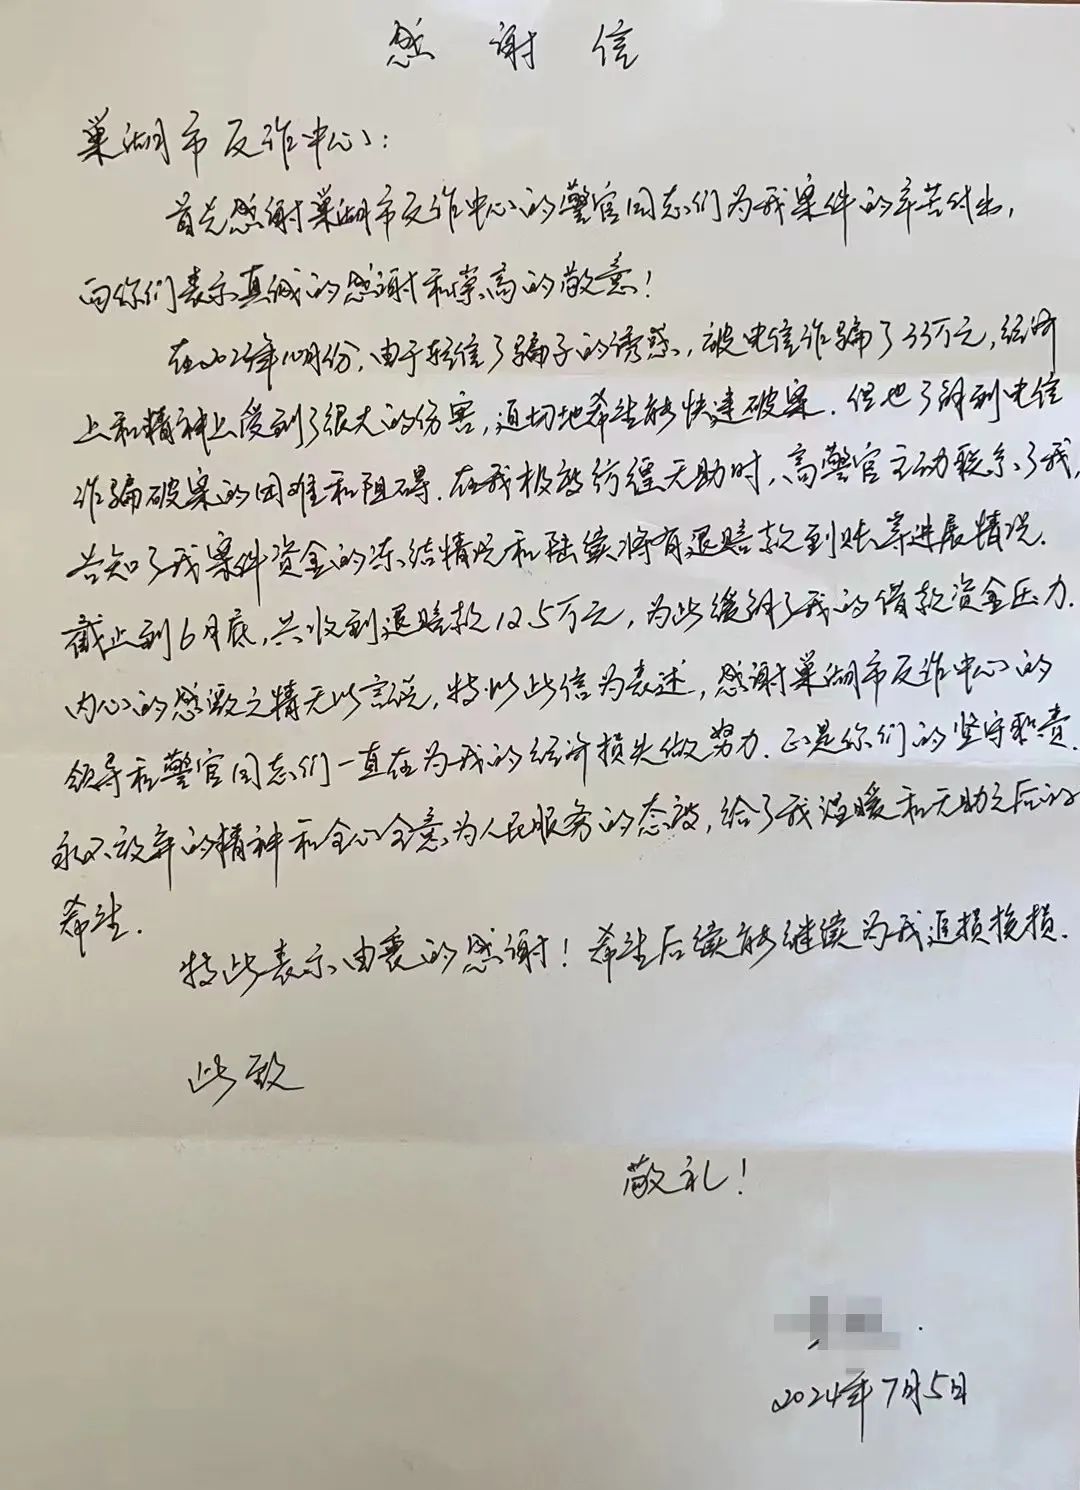 感谢信
巢湖市反诈中心：
首先感谢巢湖市反诈中心的警官同志们为我案件的辛苦付出，
向你们表示真诚的感谢和崇高的敬意！
在2023年10月份，由于轻信了骗子的诱惑，被电信诈骗了33万元，经济
上和精神上受到了很大的伤害，迫切地希望能快速破案．但也了解到电信
诈骗破案的困难和阻碍．在我极度彷徨无助时，高警官主动联系了我，
告知了我案件资金的冻结情况和陆续将有退赔款到账等进展情况．
截止到6月底，共收到退赔款12.5万元，为此缓解了我的借款资金压力．
内心的感激之情无以言说，特以此信为表述，感谢巢湖市反诈中心的
领导和警官同志们一直在为我的经济损失做努力．正是你们的坚守职责
永不放弃的精神和全心全意为人民服务的态度，给了我温暖和无助之后的
希望．
特此表示由衷的感谢！希望后续能继续为我追损挽损．
此致
敬礼！
2024年7月5日